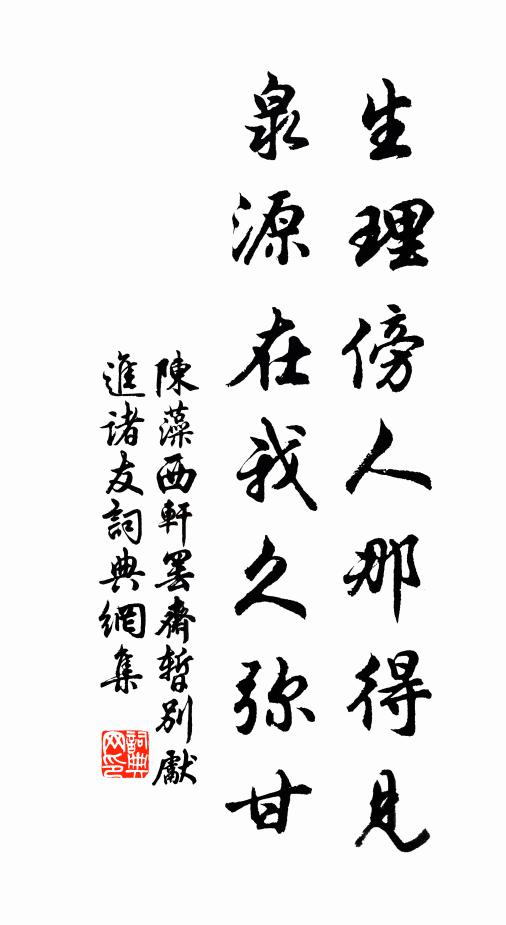 生理傍人那得見
泉源在我久弥甘
陳藻西軒罢齋暫別獻
進諸友詞典網集
詞典
网印